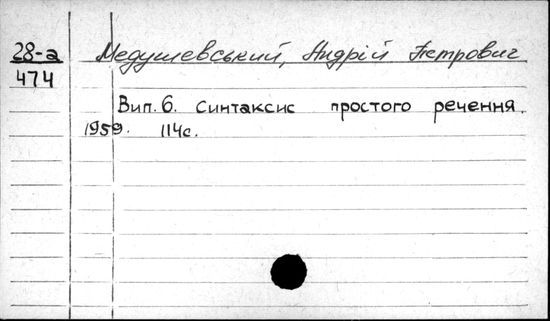 28-а Медушевський, Андрій Петрович
474
Вип. 6. Синтаксис простого речення.
1959. 114с.